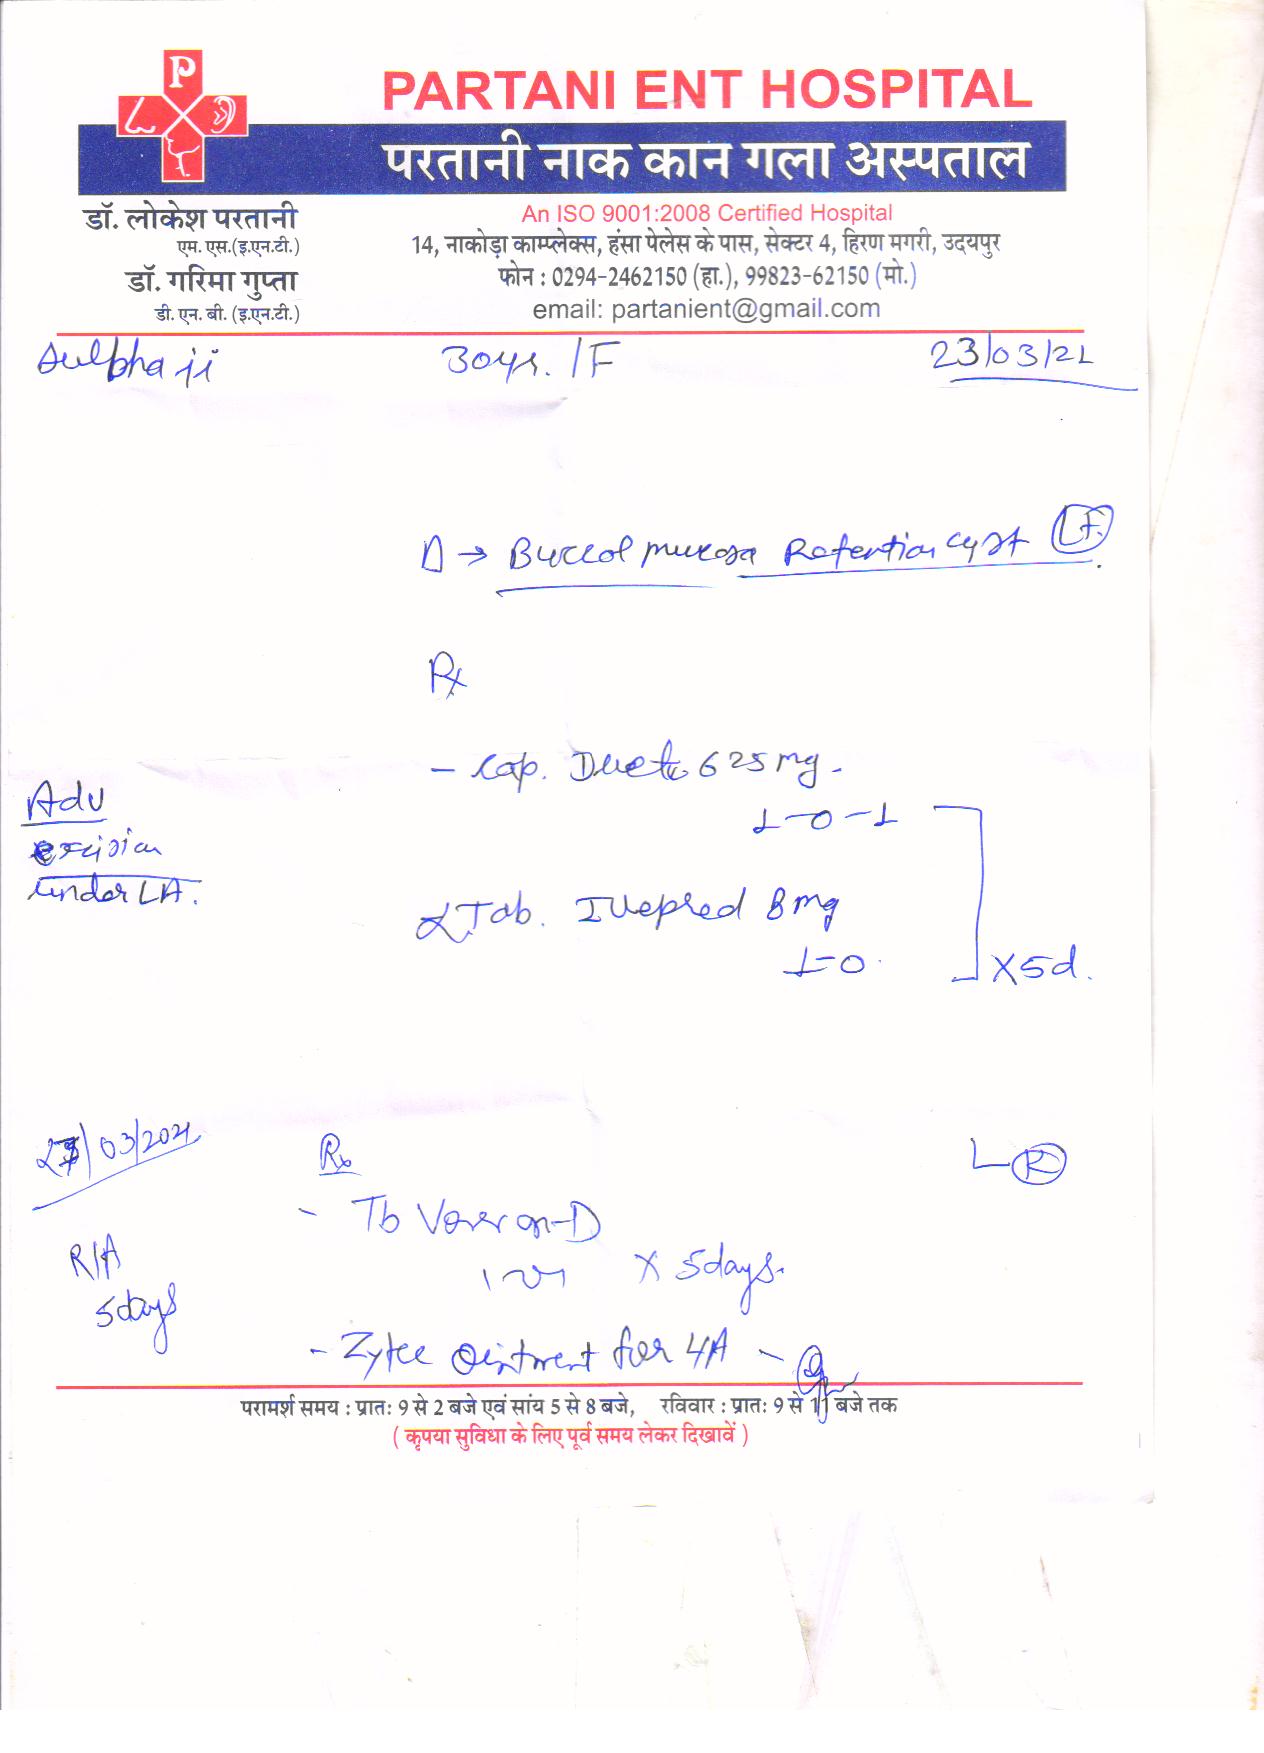 P
PARTANI ENT HOSPITAL
परतानी नाक कान गला अस्पताल
डॉ. लोकेश परतानी
एम. एस.(इ.एन.टी.)
डॉ. गरिमा गुप्ता
डी. एन. बी. (इ.एन.टी.)
An ISO 9001:2008 Certified Hospital
14, नाकोड़ा काम्प्लेक्स, हंसा पेलेस के पास, सेक्टर 4, हिरण मगरी, उदयपुर
फोन : 0294-2462150 (हा.), 99823-62150 (मो.)
email: partanient@gmail.com
ji 30yr. /F 23/03/21
Δ → Buccal mucosa Retention cyst
Rx
- Cap. 625 mg -
1-0-1
Adv
excision
under LA.
Tab. 8 mg
1-0
X5d.
/03/2021
Rx
- Tb Voveron-D
X 5days.
R/A
5days
- Zytee Ointment for 4A -
परामर्श समय : प्रातः 9 से 2 बजे एवं सांय 5 से 8 बजे, रविवार : प्रातः 9 से 11 बजे तक
( कृपया सुविधा के लिए पूर्व समय लेकर दिखावें )